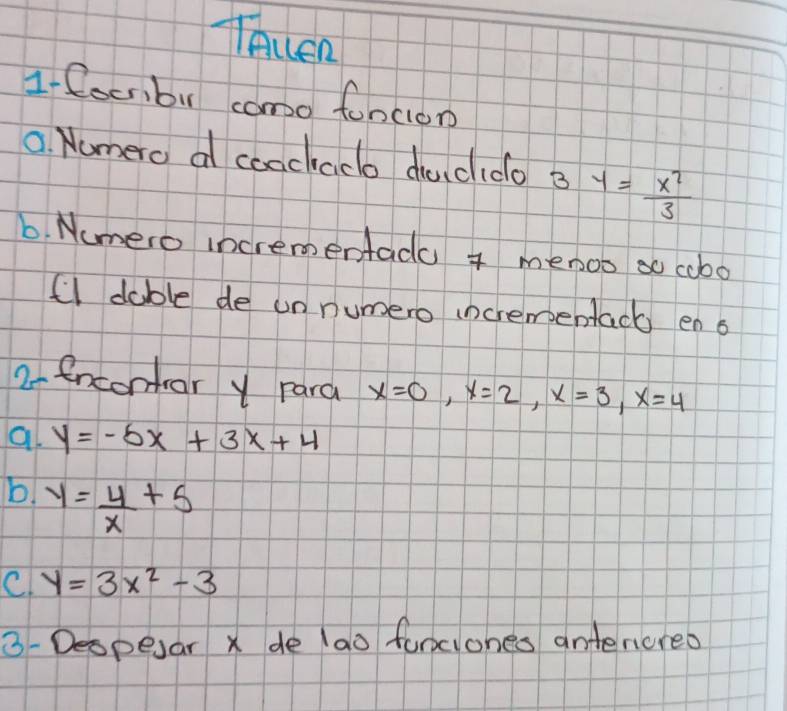 TALLER
1- Escribir como función
a. Numero al cuadrado dividido 3 y = x²/3
b. Numero incrementado 7 menos su cubo
El doble de un numero incrementado en 6
2- Encontrar y para x=0, x=2, x=3, x=4
a. y = -5x + 3x + 4
b. y = 4/x + 5
c. y = 3x² - 3
3- Despejar x de las funciones anteriores